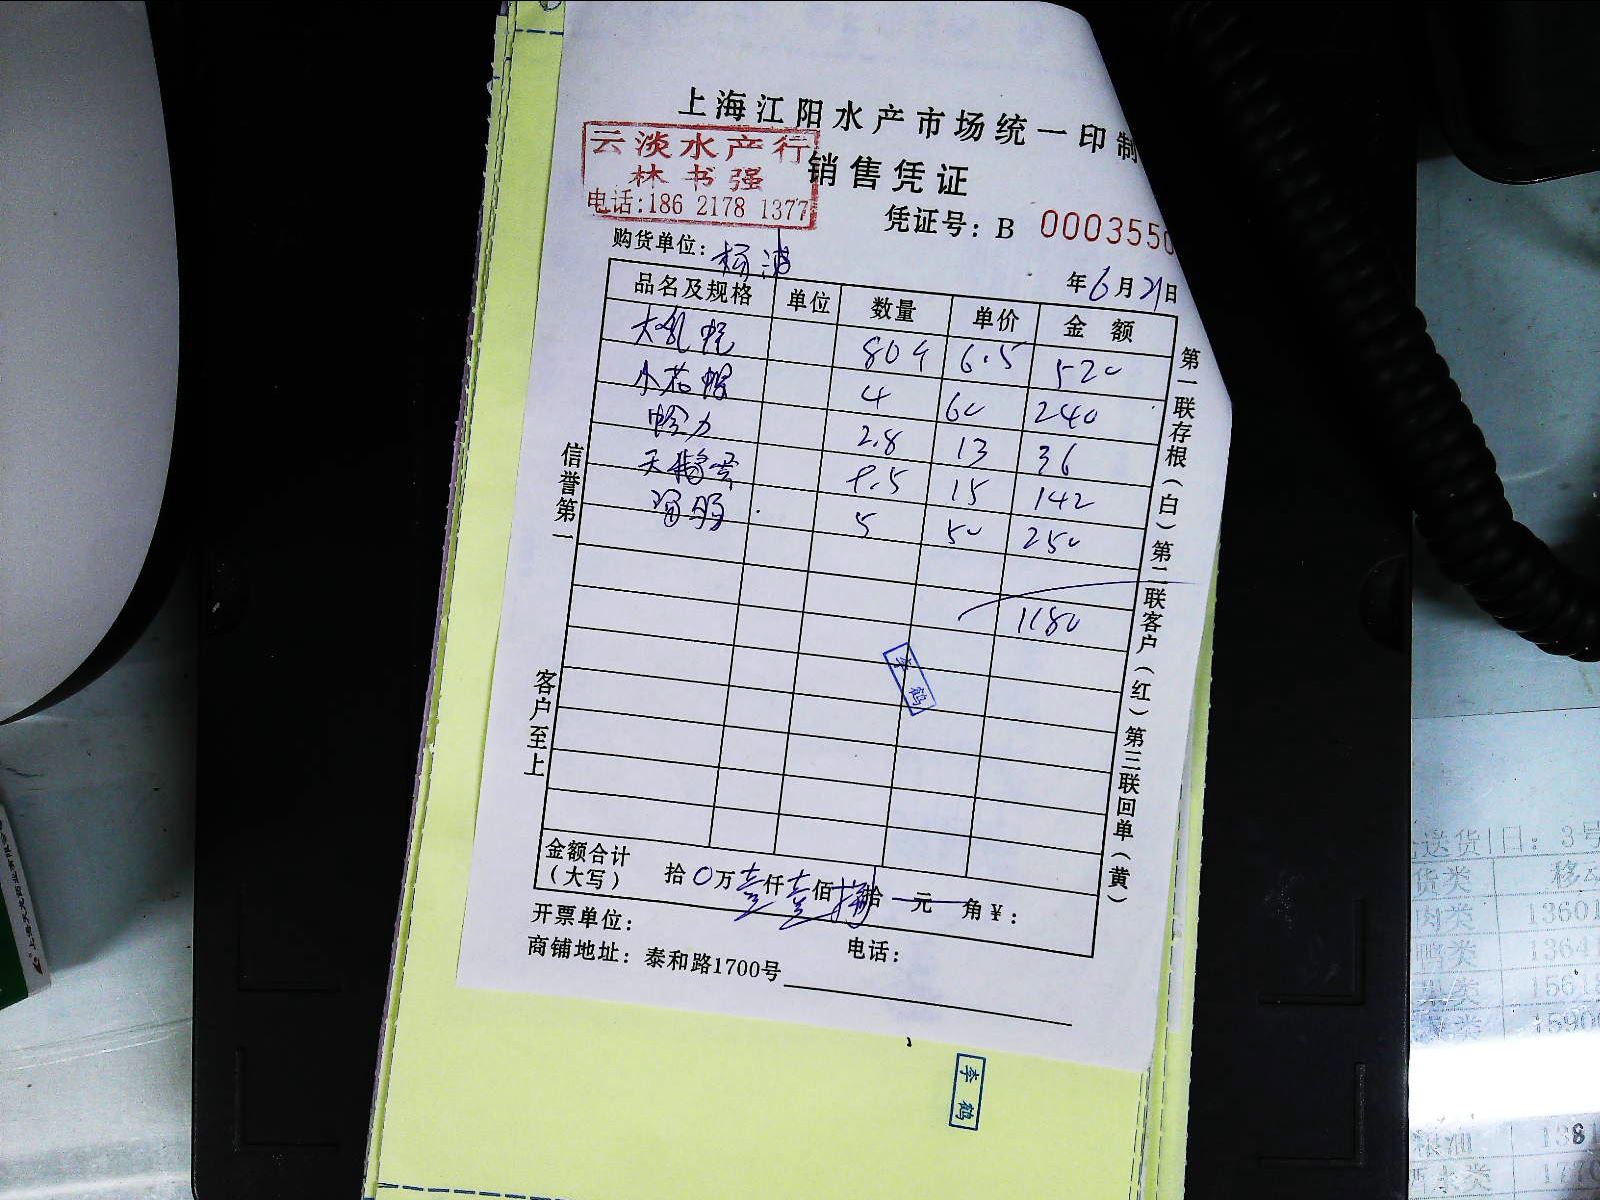 上海江阳水产市场统一印制
云淡水产行
林书强
电话:186 2178 1377
销售凭证
凭证号: B 0003550
购货单位: 杨波
年6月21日
品名及规格 单位 数量 单价 金额
80个 6.5 520
小花螺 4 60 240
蛤力 2.8 13 36
天鹅 9.5 15 142
5 50 250
1180
李鹤
信誉第一
客户至上
第一联存根(白)第二联客户(红)第三联回单(黄)
金额合计
(大写)
拾0万壹仟壹佰捌拾 元 角¥:
开票单位:
电话:
商铺地址: 泰和路1700号
李鹤
送货日: 3号
货类 移动
肉类 13601
鸭类 13641
类 15618
类 15900
粮油 1381
类 1770